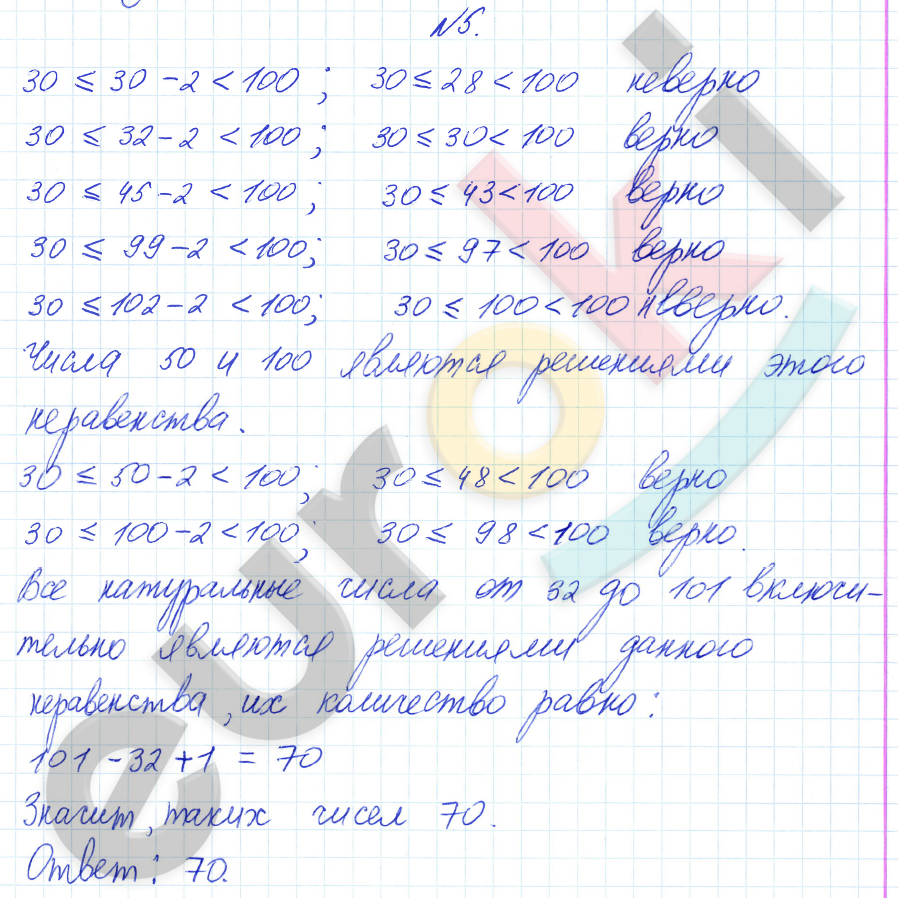 №5.
30 ≤ 30 - 2 < 100 ; 30 ≤ 28 < 100 неверно
30 ≤ 32 - 2 < 100 ; 30 ≤ 30 < 100 верно
30 ≤ 45 - 2 < 100 ; 30 ≤ 43 < 100 верно
30 ≤ 99 - 2 < 100; 30 ≤ 97 < 100 верно
30 ≤ 102 - 2 < 100; 30 ≤ 100 < 100 неверно.
Числа 50 и 100 являются решениями этого
неравенства.
30 ≤ 50 - 2 < 100; 30 ≤ 48 < 100 верно
30 ≤ 100 - 2 < 100; 30 ≤ 98 < 100 верно.
Все натуральные числа от 32 до 101 включи-
тельно являются решениями данного
неравенства, их количество равно:
101 - 32 + 1 = 70
Значит, таких чисел 70.
Ответ: 70.
euroki